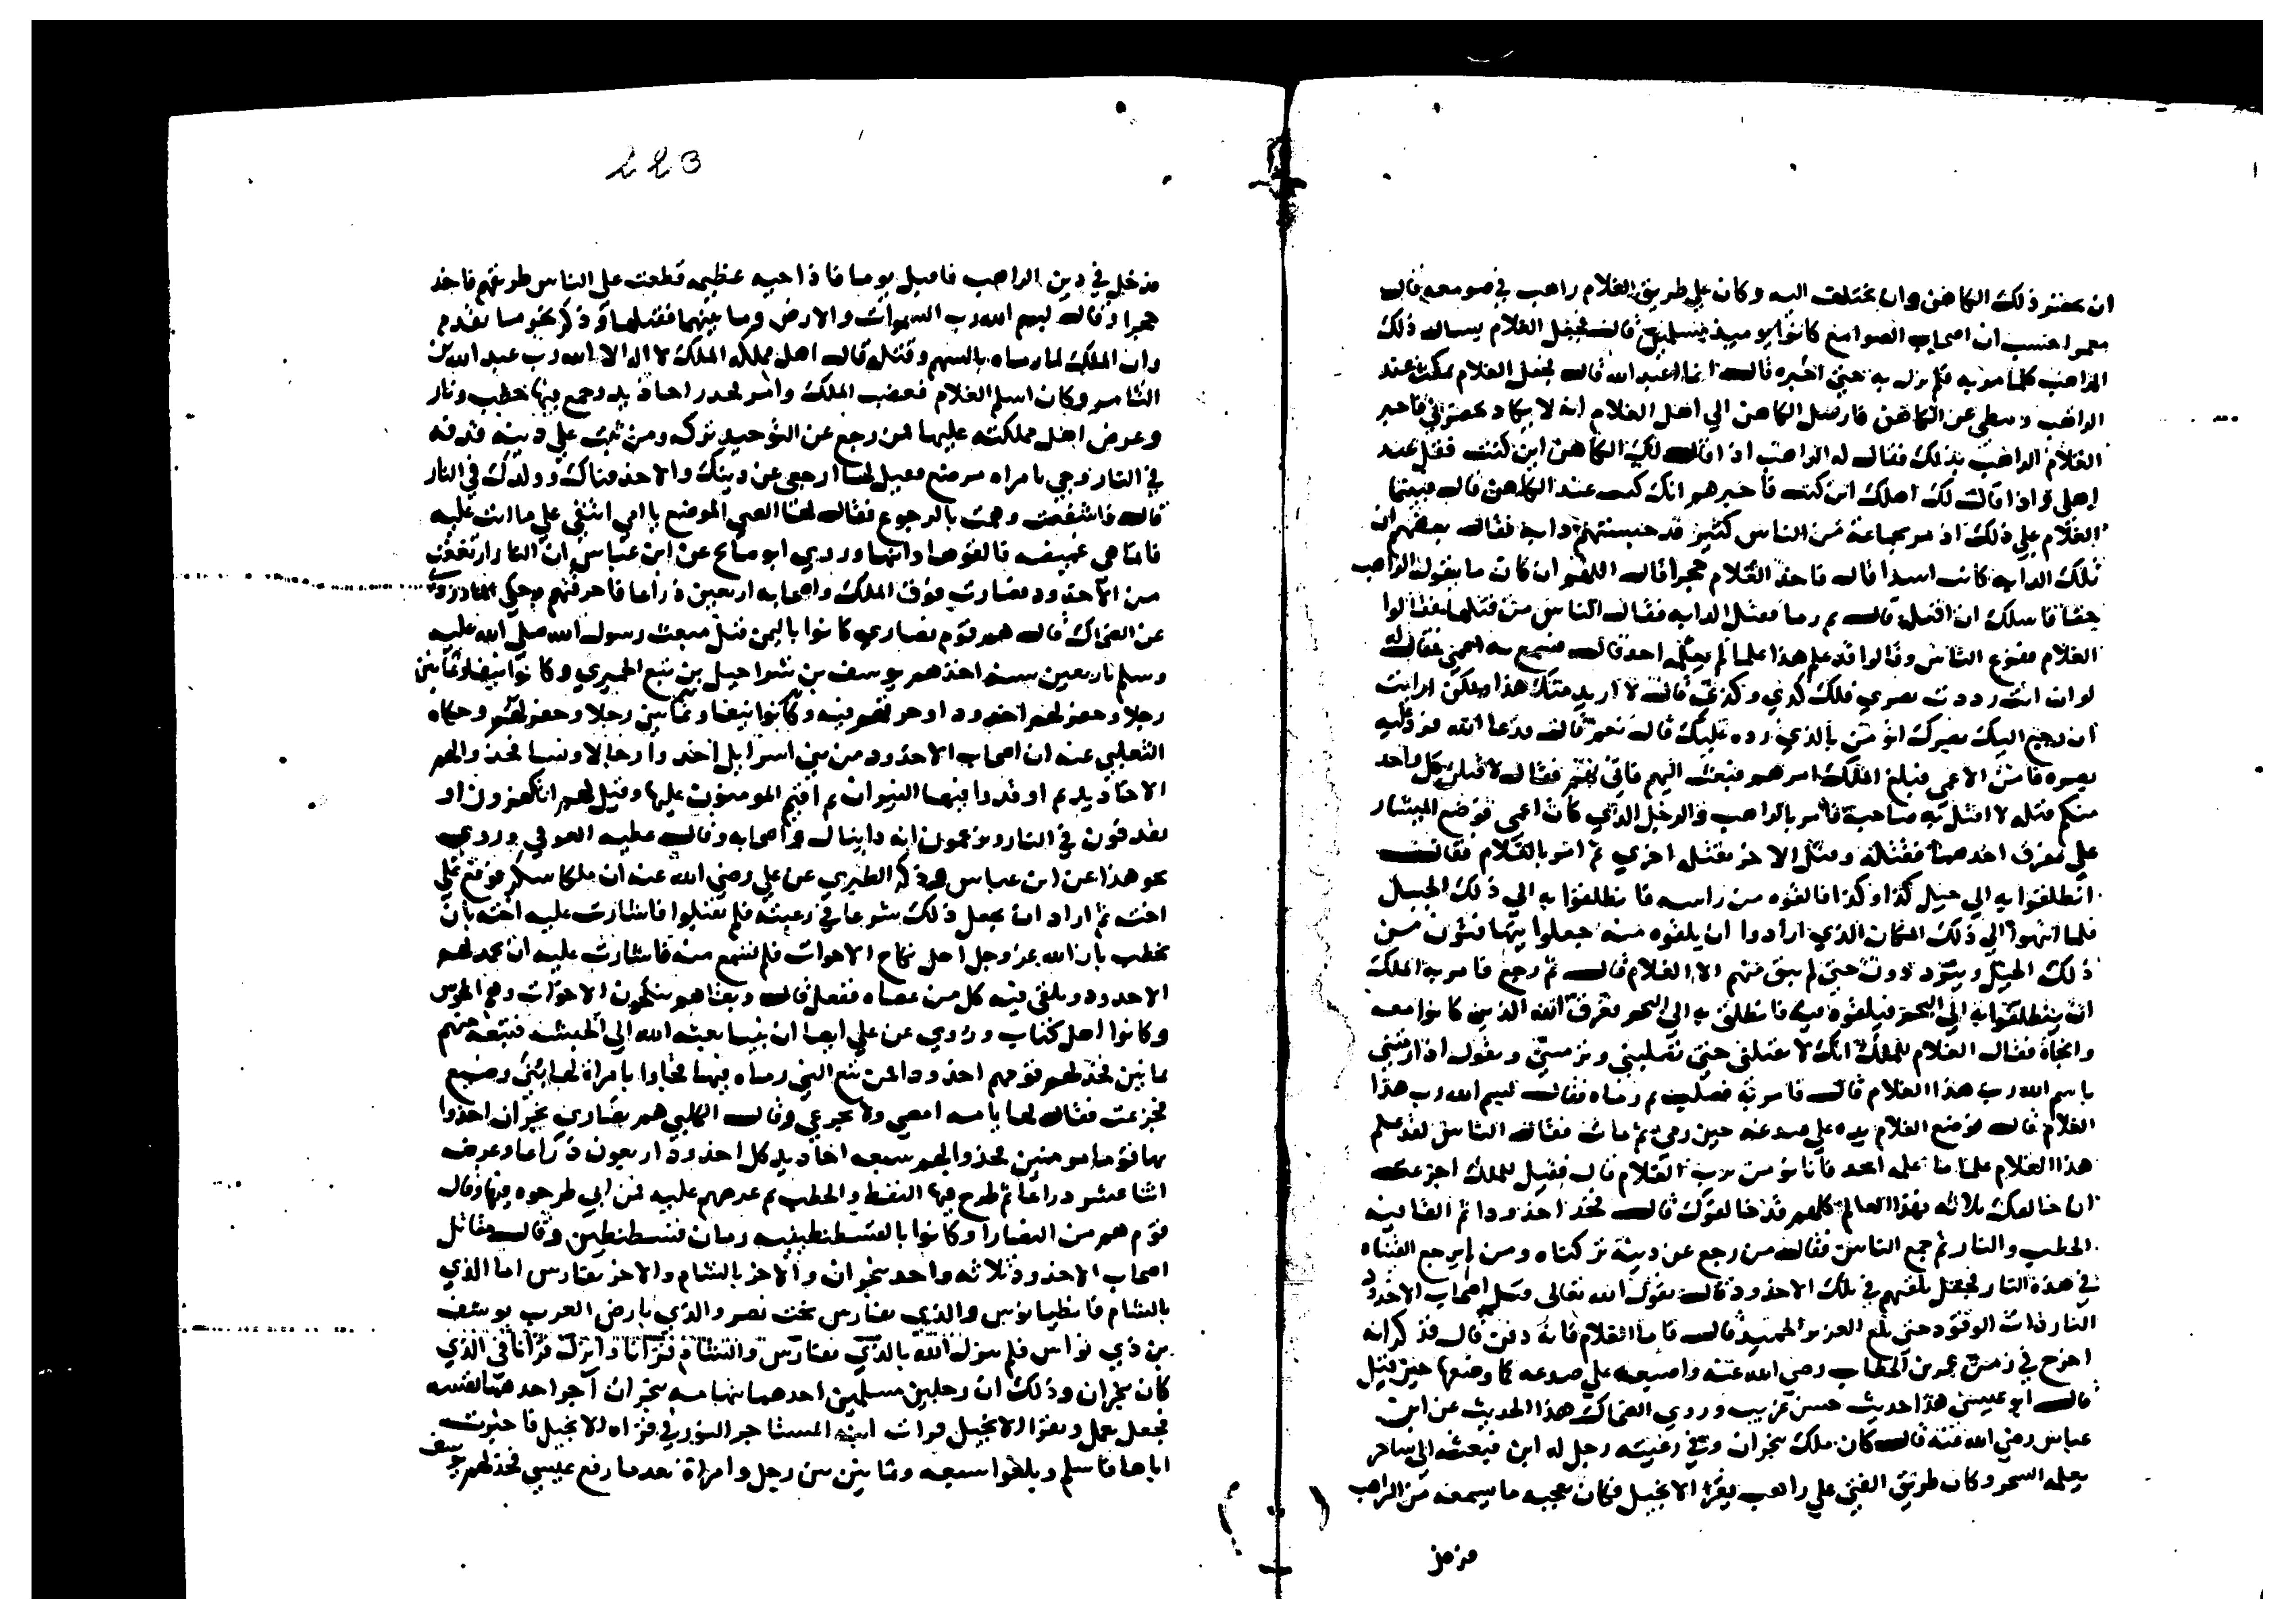 ان يحضر ذلك الكاهن وان يختلف اليه وكان علي طريق الغلام راهب في صومعه قال
معمر احسب ان اصحاب الصوامع كانوا يوميذ مسلمين قال فجعل الغلام يسال ذلك
الراهب كلما مر به فلم يزل به حتي اخبره قال انما اعبد الله قال فجعل الغلام يمكث عند
الراهب ويبطي عن الكاهن فارسل الكاهن الي اهل الغلام انه لا يكاد يحضرني فاخبر
الغلام الراهب بذلك فقال له الراهب اذا قال لك الكاهن اين كنت فقل عند
اهلي واذا قال لك اهلك اين كنت فاخبرهم انك كنت عند الكاهن قال فبينما
الغلام علي ذلك اذ مر بجماعة من الناس كثير قد حبستهم دابه فقال بعضهم ان
تلك الدابه كانت اسدا قال فاخذ الغلام حجرا قال اللهم ان كان ما يقول الراهب
حقا فاسلك ان اقتله قال ثم رما فقتل الدابه فقال الناس من قتلها فقالوا
الغلام ففزع الناس وقالوا قد علم هذا علما لم يعلمه احد قال فسمع به اعمي فقال له
لو ان انت رددت بصري فلك كذي وكذي قال لا اريد منك هذا ولكن ارايت
ان رجع اليك بصرك اتؤمن بالذي رده عليك قال نعم قال فدعا الله فرد عليه
بصره فامن الاعمي فبلغ الملك امرهم فبعث اليهم فاتي بهم فقال لاقتلن كل واحد
منكم قتله لا اقتل به صاحبه فامر بالراهب والرجل الذي كان اعمي فوضع الميشار
علي مفرق احدهما فقتله وقتل الاخر بقتله اخري ثم امر بالغلام فقال
انطلقوا به الي جبل كذا وكذا فالقوه من راسه فانطلقوا به الي ذلك الجبل
فلما انتهوا الي ذلك المكان الذي ارادوا ان يلقوه منه جعلوا يتهافتون من
ذلك الجبل ويتردون حتي لم يبق منهم الا الغلام قال ثم رجع فامر به الملك
ان ينطلقوا به الي البحر فيلقوه فيه فانطلق به الي البحر فغرق الله الذين كانوا معه
وانجاه فقال الغلام للملك انك لا تقتلني حتي تصلبني وترميني وتقول اذا رميتني
باسم الله رب هذا الغلام قال فامر به فصلب ثم رماه فقال بسم الله رب هذا
الغلام قال فوضع الغلام يده علي صدغه حين رمي ثم مات فقال الناس لقد علم
هذا الغلام علما ما علمه احد فانا نؤمن برب الغلام قال فقيل للملك اجزعت
ان خالفك ثلاثه فهذا العالم كلهم قد خالفوك قال فخد اخدودا ثم القا فيه
الحطب والنار ثم جمع الناس فقال من رجع عن دينه تركناه ومن لم يرجع القيناه
في هذه النار فجعل يلقيهم في تلك الاخدود قال يقول الله تعالي قتل اصحاب الاخدود
النار ذات الوقود حتي بلغ العزيز الحميد قال فاما الغلام فانه دفن قال فذكر انه
اخرج في زمن عمر بن الخطاب رضي الله عنه واصبعه علي صدغه كما وضعها حين قتل
قال ابو عيسي هذا حديث حسن غريب وروي الضحاك هذا الحديث عن ابن
عباس رضي الله عنه قال كان ملك بنجران وفي رعيته رجل له ابن فبعثه الي ساحر
يعلمه السحر وكان طريق الفتي علي راهب يقرا الانجيل فكان يعجبه ما يسمعه من الراهب
فدخل
223
فدخل في دين الراهب فاقبل يوما فاذا حيه عظيمه قطعت علي الناس طريقهم فاخذ
حجرا وقال بسم الله رب السموات والارض وما بينهما فقتلها وذكر نحو ما تقدم
وان الملك لما رماه بالسهم وقتله قال اهل مملكه الملك لا اله الا الله رب عبد الله بن
الثامر وكان اسم الغلام فغضب الملك وامر فخدر اخاديد وجمع فيها حطب ونار
وعرض اهل مملكته عليها فمن رجع عن التوحيد تركه ومن ثبت علي دينه قذفه
في النار وجي بامراه مرضع فقيل لها ارجعي عن دينك والا قذفناك وولدك في النار
قال فاشفقت وهمت بالرجوع فقال لها الصبي المرضع يا امي اثبتي علي ما انت عليه
فانما هي غميضه فالقوها وابنها وروي ابو صالح عن ابن عباس ان النار ارتفعت
من الاخدود فصارت فوق الملك واصحابه اربعين ذراعا فاحرقتهم وحكي الماوردي
عن الضحاك قال هم قوم نصاري كانوا باليمن قبل مبعث رسول الله صلي الله عليه
وسلم باربعين سنه اخذهم يوسف بن شراحيل بن تبع الحميري وكانوا نيفا وثمانين
رجلا وحفر لهم اخدودا واحرقهم فيه وكانوا نيفا وثمانين رجلا وحفر لهم وحكاه
الثعلبي عنه ان اصحاب الاخدود من بني اسرايل اخذوا رجالا ونسا فخدوا لهم
الاخاديد ثم اوقدوا فيها النيران ثم اقيم المومنون عليها وقيل لهم اتكفرون او
تقذفون في النار ويزعمون انه دانيال واصحابه وقال عطيه العوفي وروي
نحو هذا عن ابن عباس وذكر الطبري عن علي رضي الله عنه ان ملكا سكر فوقع علي
اخته ثم اراد ان يجعل ذلك شرعا في رعيته فلم يقبلوا فاشارت عليه اخته بان
يخطب بان الله عز وجل احل نكاح الاخوات فلم يسمع منه فاشارت عليه ان يخد لهم
الاخدود ويلقي فيه كل من عصاه ففعل قال وبقاياهم ينكحون الاخوات وهم المجوس
وكانوا اهل كتاب وروي عن علي ايضا ان نبيا بعثه الله الي الحبشه فتبعه منهم
ناس فخد لهم قومهم اخدودا فمن تبع النبي رماه فيها فجاوا بامراة لها بُني رضيع
فجزعت فقال لها يا امه امضي ولا تجزعي وقال الكلبي هم نصاري نجران اخذوا
بها قوما مومنين فخدوا لهم سبعه اخاديد كل اخدود اربعون ذراعا وعرضه
اثنا عشر ذراعا ثم طرح فيها النفط والحطب ثم عرضهم عليه فمن ابي طرحوه فيها وقال
قوم هم من النصارا وكانوا بالقسطنطينيه زمان قسطنطين وقال مقاتل
اصحاب الاخدود ثلاثه واحد بنجران والاخر بالشام والاخر بفارس اما الذي
بالشام فانطيانوس والذي بفارس بخت نصر والذي بارض العرب يوسف
بن ذي نواس فلم ينزل الله بالذي بفارس والشام قرانا وانزل قرانا في الذي
كان بنجران وذلك ان رجلين مسلمين احدهما بتهامه بنجران آجر احدهما نفسه
فجعل يعمل ويقرا الانجيل فرات ابنه المستاجر النور في قراه الانجيل فاخبرت
اباها فاسلم وبلغوا سبعه وثمانين من رجل وامراة بعد ما رفع عيسي فخد لهم يوسف